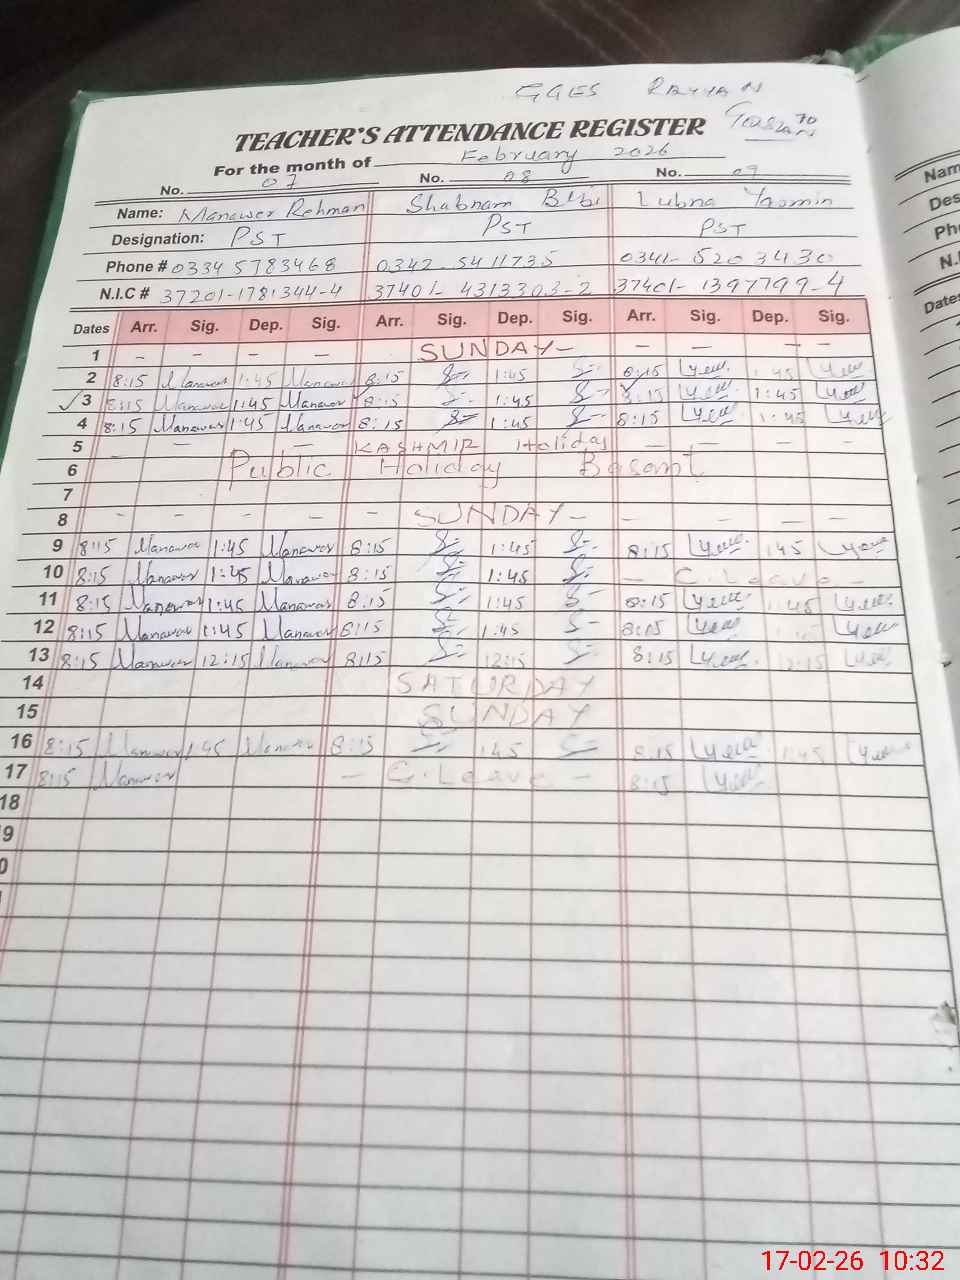 GGES RAYYAN
TEACHER'S ATTENDANCE REGISTER
For the month of February 2026
No. 07 No. 08 No. 09
Name: Manawer Rehman Shabnam Bibi Lubna Yasmin
Designation: PST PST PST
Phone # 0334 5783468 0342-5411735 0341-520 3430
N.I.C # 37201-1781344-4 37401-4313303-2 37401-1397799-4
Dates Arr. Sig. Dep. Sig. Arr. Sig. Dep. Sig. Arr. Sig. Dep. Sig.
1 - - - - SUNDAY - - - - -
2 8:15 Manawar 1:45 Manawar 8:15 1:45 8:15 1:45
3 8:15 Manawar 1:45 Manawar 8:15 1:45 8:15 1:45
4 8:15 Manawar 1:45 Manawar 8:15 1:45 8:15 1:45
5 - - - KASHMIR Holiday - - - -
6 Public Holiday Basant
7
8 - - - - - SUNDAY - - - -
9 8:15 Manawar 1:45 Manawar 8:15 1:45 8:15 1:45
10 8:15 Manawar 1:45 Manawar 8:15 1:45 - C.Leave -
11 8:15 Manawar 1:45 Manawar 8:15 1:45 8:15 1:45
12 8:15 Manawar 1:45 Manawar 8:15 1:45 8:15 1:45
13 8:15 Manawar 12:15 Manawar 8:15 12:15 8:15 12:15
14 SATURDAY
15 SUNDAY
16 8:15 Manawar 1:45 Manawar 8:15 1:45 8:15 1:45
17 8:15 Manawar - C.Leave - 8:15
18
9
0
Nam
Des
Ph
N.I
Dates
17-02-26 10:32